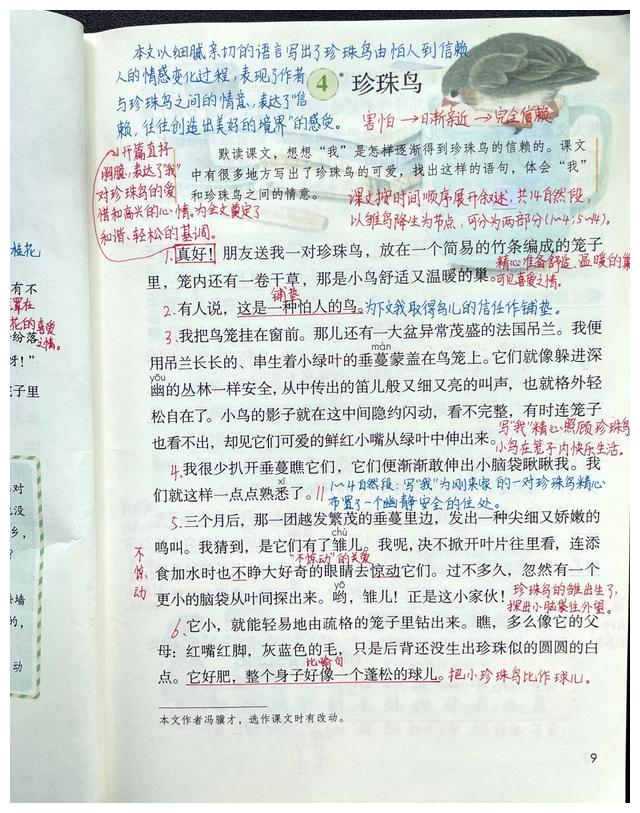 本文以细腻亲切的语言写出了珍珠鸟由怕人到信赖
人的情感变化过程，表现了作者
与珍珠鸟之间的情意，表达了“信
赖，往往创造出美好的境界”的感受。
4* 珍珠鸟
害怕→日渐亲近→完全信赖
默读课文，想想“我”是怎样逐渐得到珍珠鸟的信赖的。课文
中有很多地方写出了珍珠鸟的可爱，找出这样的语句，体会“我”
和珍珠鸟之间的情意。
开篇直抒
胸臆，表达了“我”
对珍珠鸟的爱
惜和高兴的心情。为全文奠定了
和谐、轻松的基调。
课文按时间顺序展开叙述，共14自然段，
以雏鸟降生为节点，可分为两部分（1~4，5~14）。
1.真好！朋友送我一对珍珠鸟，放在一个简易的竹条编成的笼子
里，笼内还有一卷干草，那是小鸟舒适又温暖的巢。
精心准备舒适、温暖的巢
可见喜爱之情。
铺垫
2.有人说，这是一种怕人的鸟。为下文我取得鸟儿的信任作铺垫。
3.我把鸟笼挂在窗前。那儿还有一大盆异常茂盛的法国吊兰。我便
màn
用吊兰长长的、串生着小绿叶的垂蔓蒙盖在鸟笼上。它们就像躲进深
yōu
幽的丛林一样安全，从中传出的笛儿般又细又亮的叫声，也就格外轻
松自在了。小鸟的影子就在这中间隐约闪动，看不完整，有时连笼子
也看不出，却见它们可爱的鲜红小嘴从绿叶中伸出来。
写“我”精心照顾珍珠鸟
小鸟在笼子内快乐生活。
4.我很少扒开垂蔓瞧它们，它们便渐渐敢伸出小脑袋瞅瞅我。我
xī
们就这样一点点熟悉了。
1~4自然段：写“我”为刚来家的一对珍珠鸟精心
布置了一个幽静安全的住处。
5.三个月后，那一团越发繁茂的垂蔓里边，发出一种尖细又娇嫩的
chú
鸣叫。我猜到，是它们有了雏儿。我呢，决不掀开叶片往里看，连添
“不惊动”的关爱
食加水时也不睁大好奇的眼睛去惊动它们。过不多久，忽然有一个
不惊动
yō
更小的脑袋从叶间探出来。哟，雏儿！正是这小家伙！
珍珠鸟的雏儿出生了，
探出小脑袋往外望。
6.它小，就能轻易地由疏格的笼子里钻出来。瞧，多么像它的父
母：红嘴红脚，灰蓝色的毛，只是后背还没生出珍珠似的圆圆的白
比喻句
点。它好肥，整个身子好像一个蓬松的球儿。把小珍珠鸟比作球儿。
本文作者冯骥才，选作课文时有改动。
9
桂花
有不
花的喜爱
之情。
纷落
呀！”
花子里
对
没
乡，
？
墙
的，
动